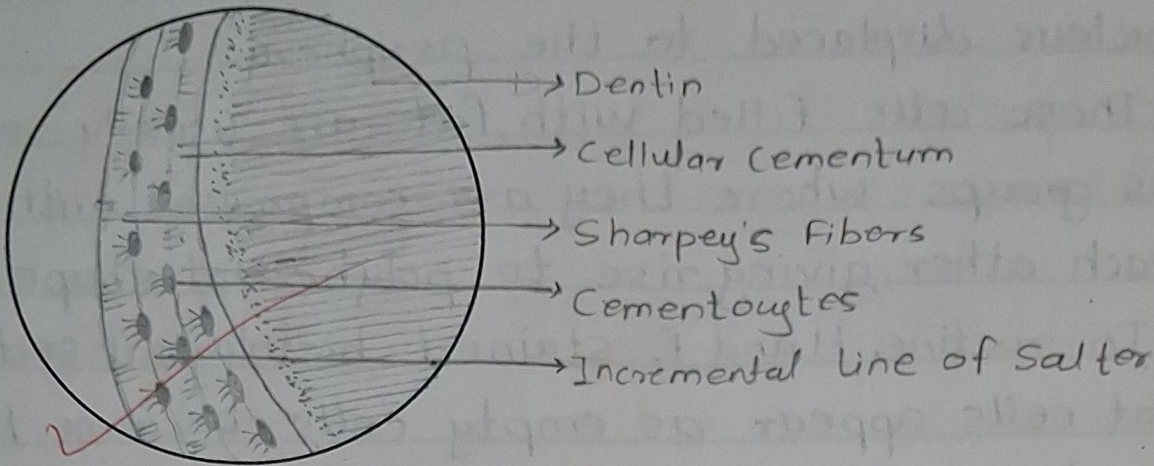 Dentin
Cellular Cementum
Sharpey's Fibers
Cementouytes
Incremental line of Salter